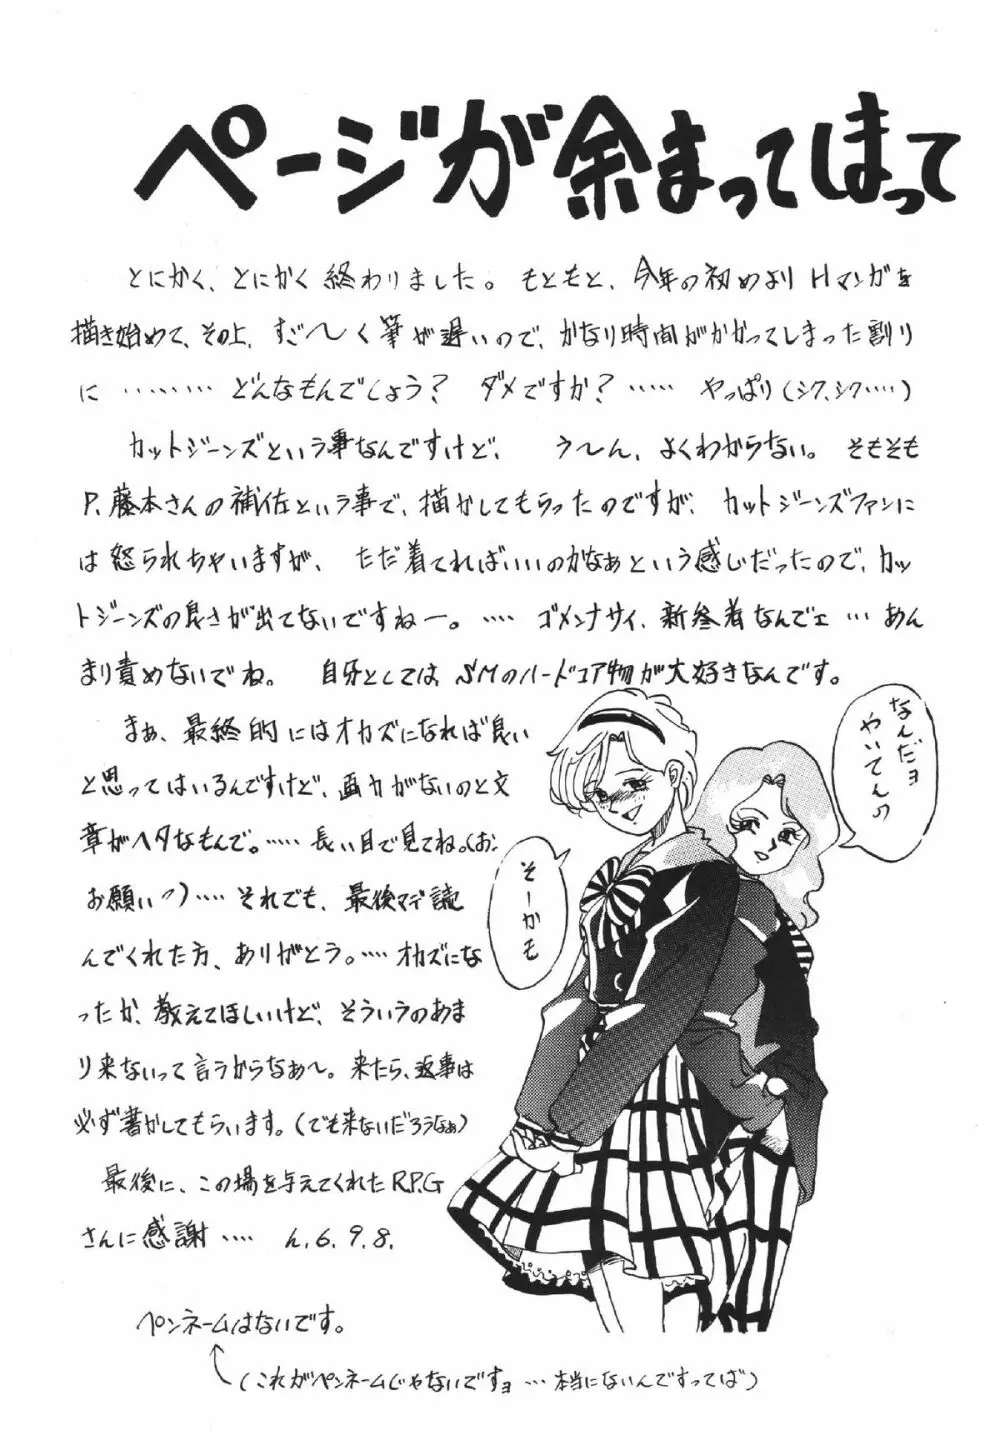 ページが余まってしまって
とにかく、とにかく終わりました。もともと、今年の初めよりHマンガを
描き始めて、その上、すご〜く筆が遅いので、かなり時間がかかってしまった割り
に………どんなもんでしょう？ ダメですか？…… やっぱり(シク、シク……)
カットジーンズという事なんですけど、 う〜ん、よくわからない。そもそも
P.藤本さんの補佐という事で、描かしてもらったのですが、カットジーンズファンに
は怒られちゃいますが、ただ着てればいいのかなぁという感じだったので、カッ
トジーンズの良さが出てないですねー。…. ゴメンナサイ、新参者なんでェ…あん
まり責めないでね。 自分としては、SMのハードコア物が大好きなんです。
まぁ、最終的にはオカズになれば良い
と思ってはいるんですけど、画力がないのと文
章がヘタなもんで。…… 長い目で見てね。(お、
お願いっ)…… それでも、最後マデ読
んでくれた方、ありがとう。…… オカズにな
ったか、教えてほしいけど、そういうのあま
り来ないって言うからなぁ〜。来たら、返事は
必ず書かしてもらいます。(でも来ないだろうなぁ)
最後に、この場を与えてくれたR.P.G
さんに感謝…… h.6.9.8.
なんだョ
やいてんの
そーかも
ペンネームはないです。
(これがペンネームじゃないですョ…本当にないんですってば)